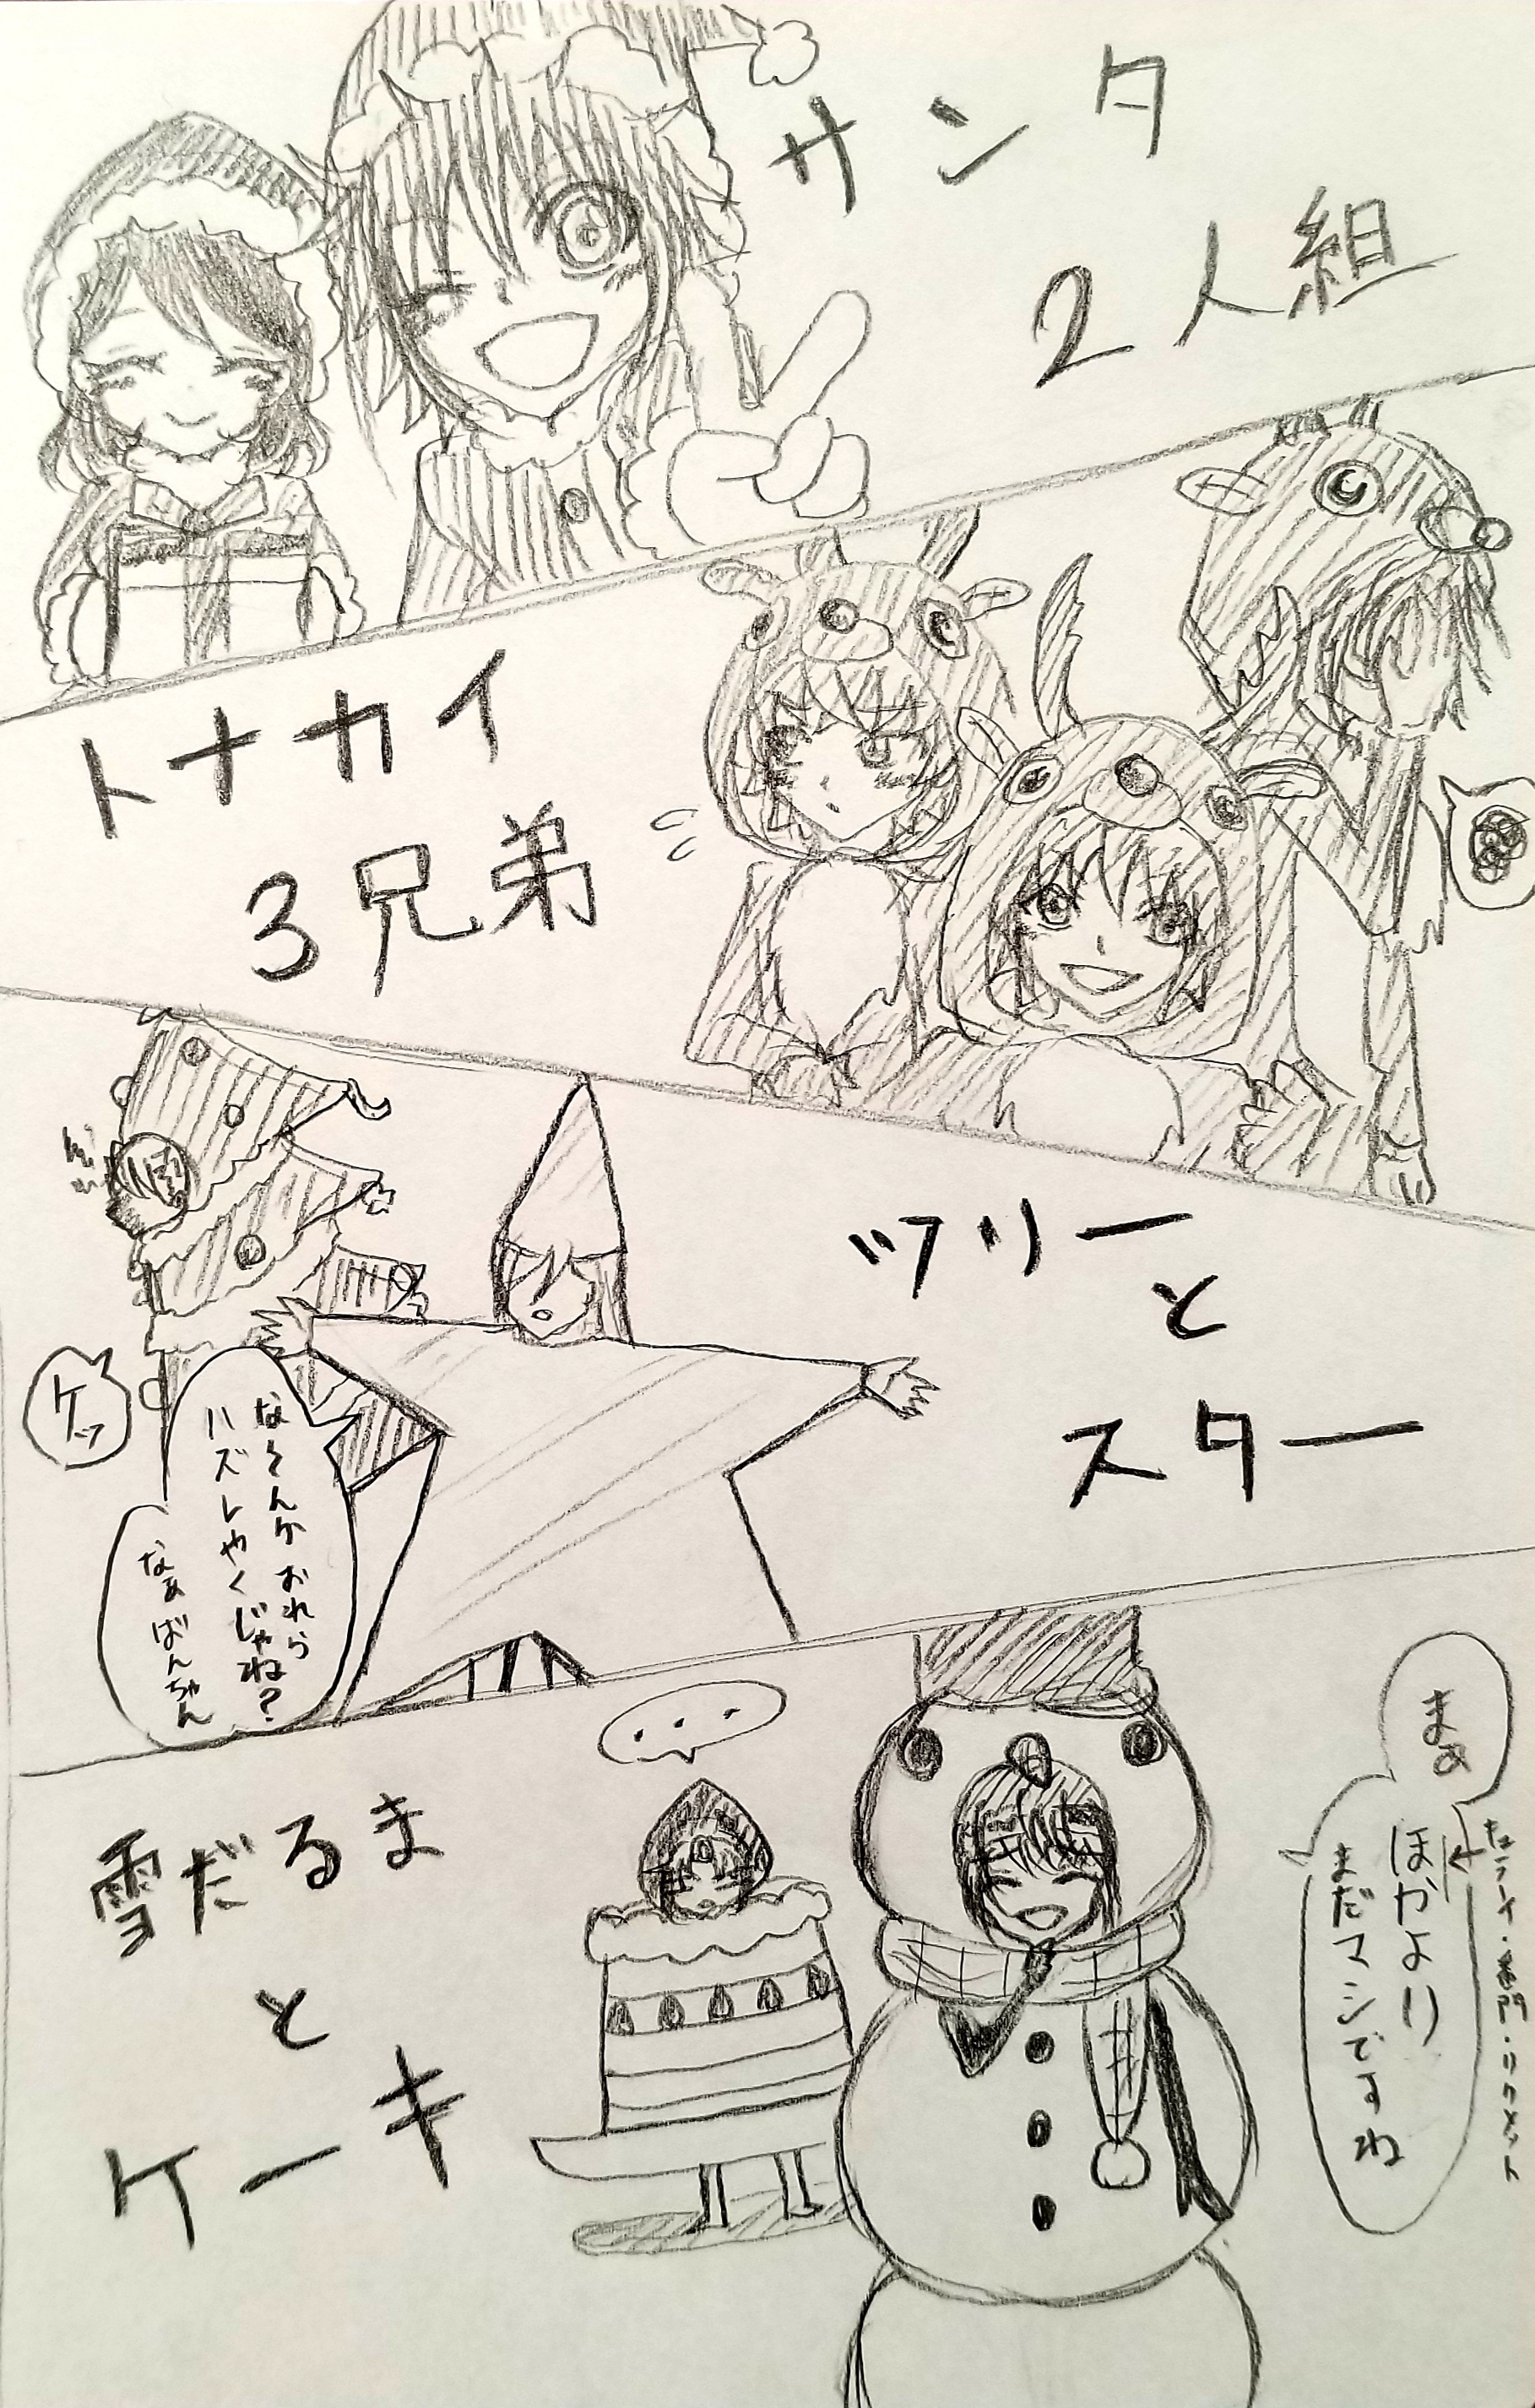 サンタ
2人組
トナカイ
3兄弟
ツリー
と
スター
ケッ
なんかおれら
ハズレやくじゃね?
なあばんちゃん
雪だるま
と
ケーキ
・・・
まぁ
ほかより
まだマシですね